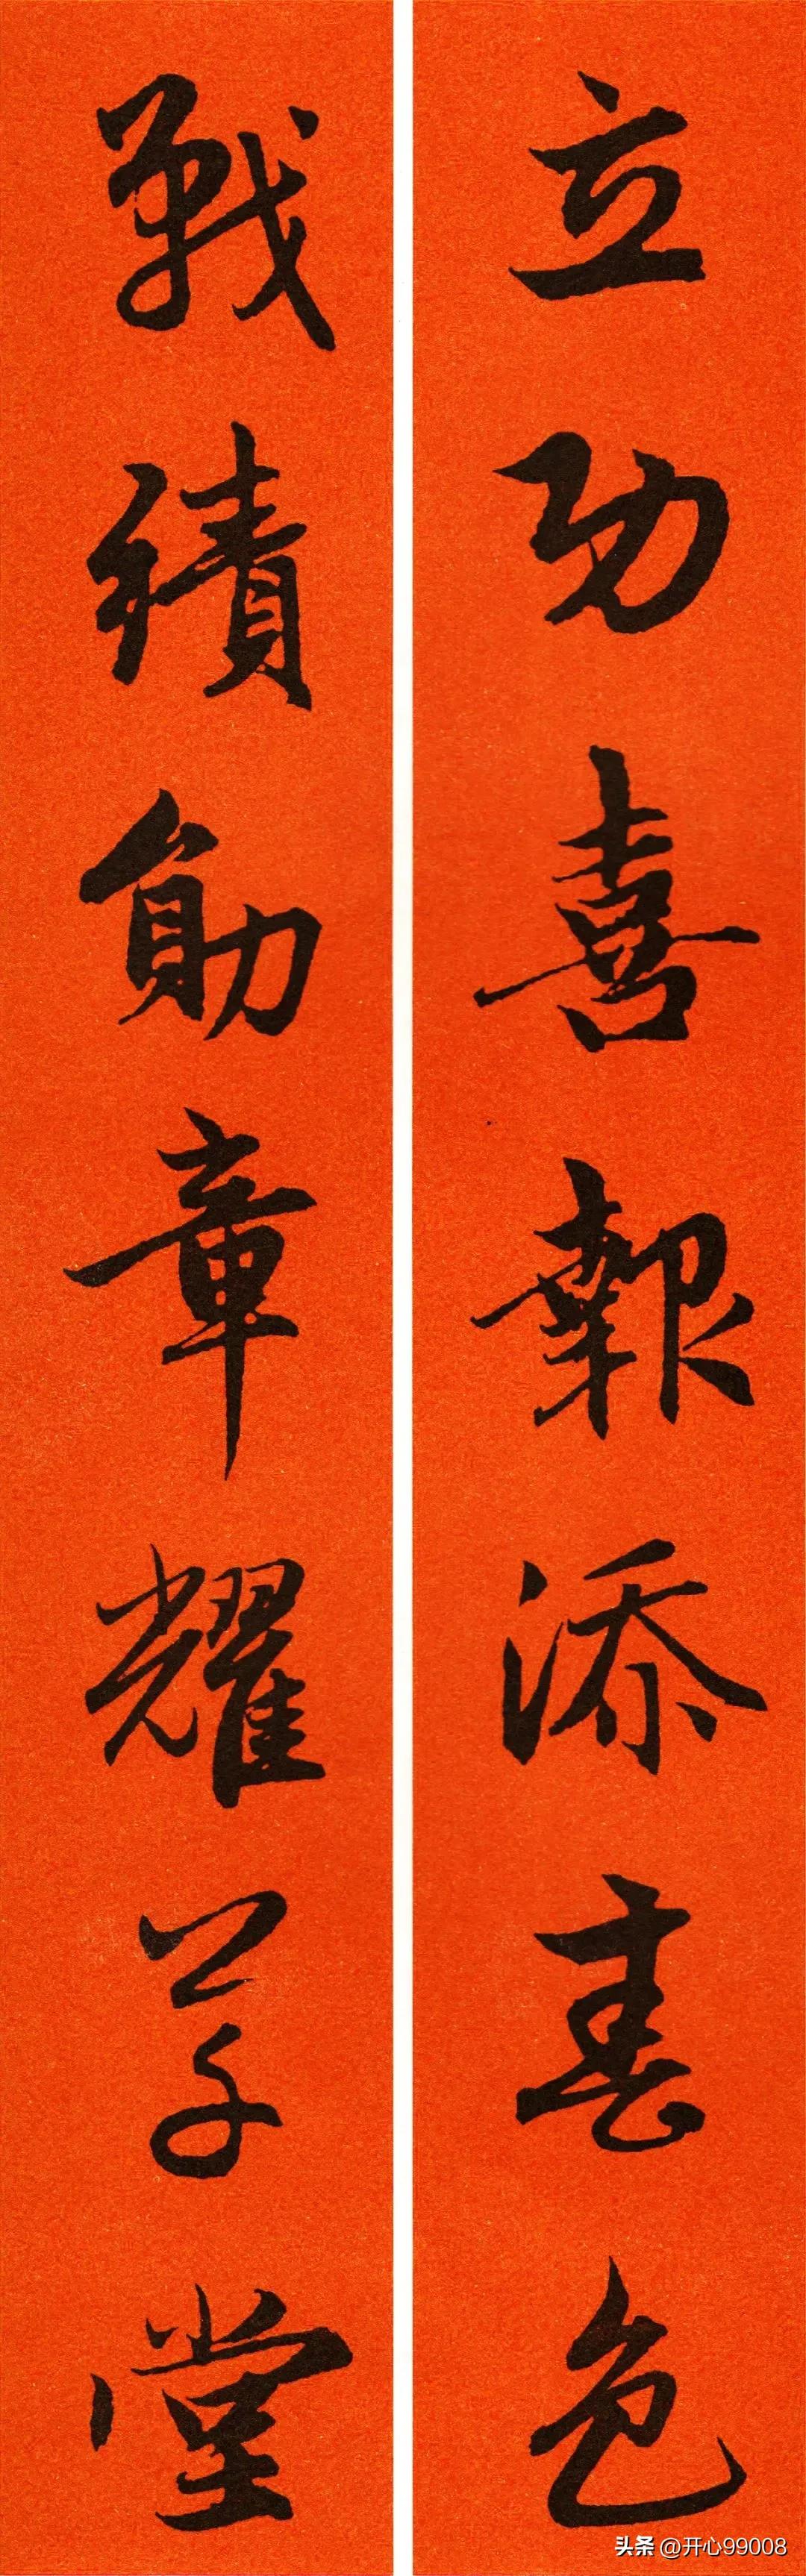 立功喜報添春色
戰績勛章耀草堂
头条 @开心99008